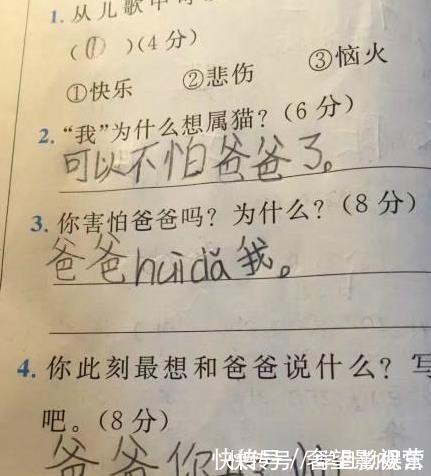 1. 从儿歌中
(① )(4分)
①快乐 ②悲伤 ③恼火
2. “我”为什么想属猫？(6分)
可以不怕爸爸了。
3. 你害怕爸爸吗？为什么？(8分)
爸爸huì dǎ我。
4. 你此刻最想和爸爸说什么？写
吧。(8分)
爸爸你
快传号/奢望影视营